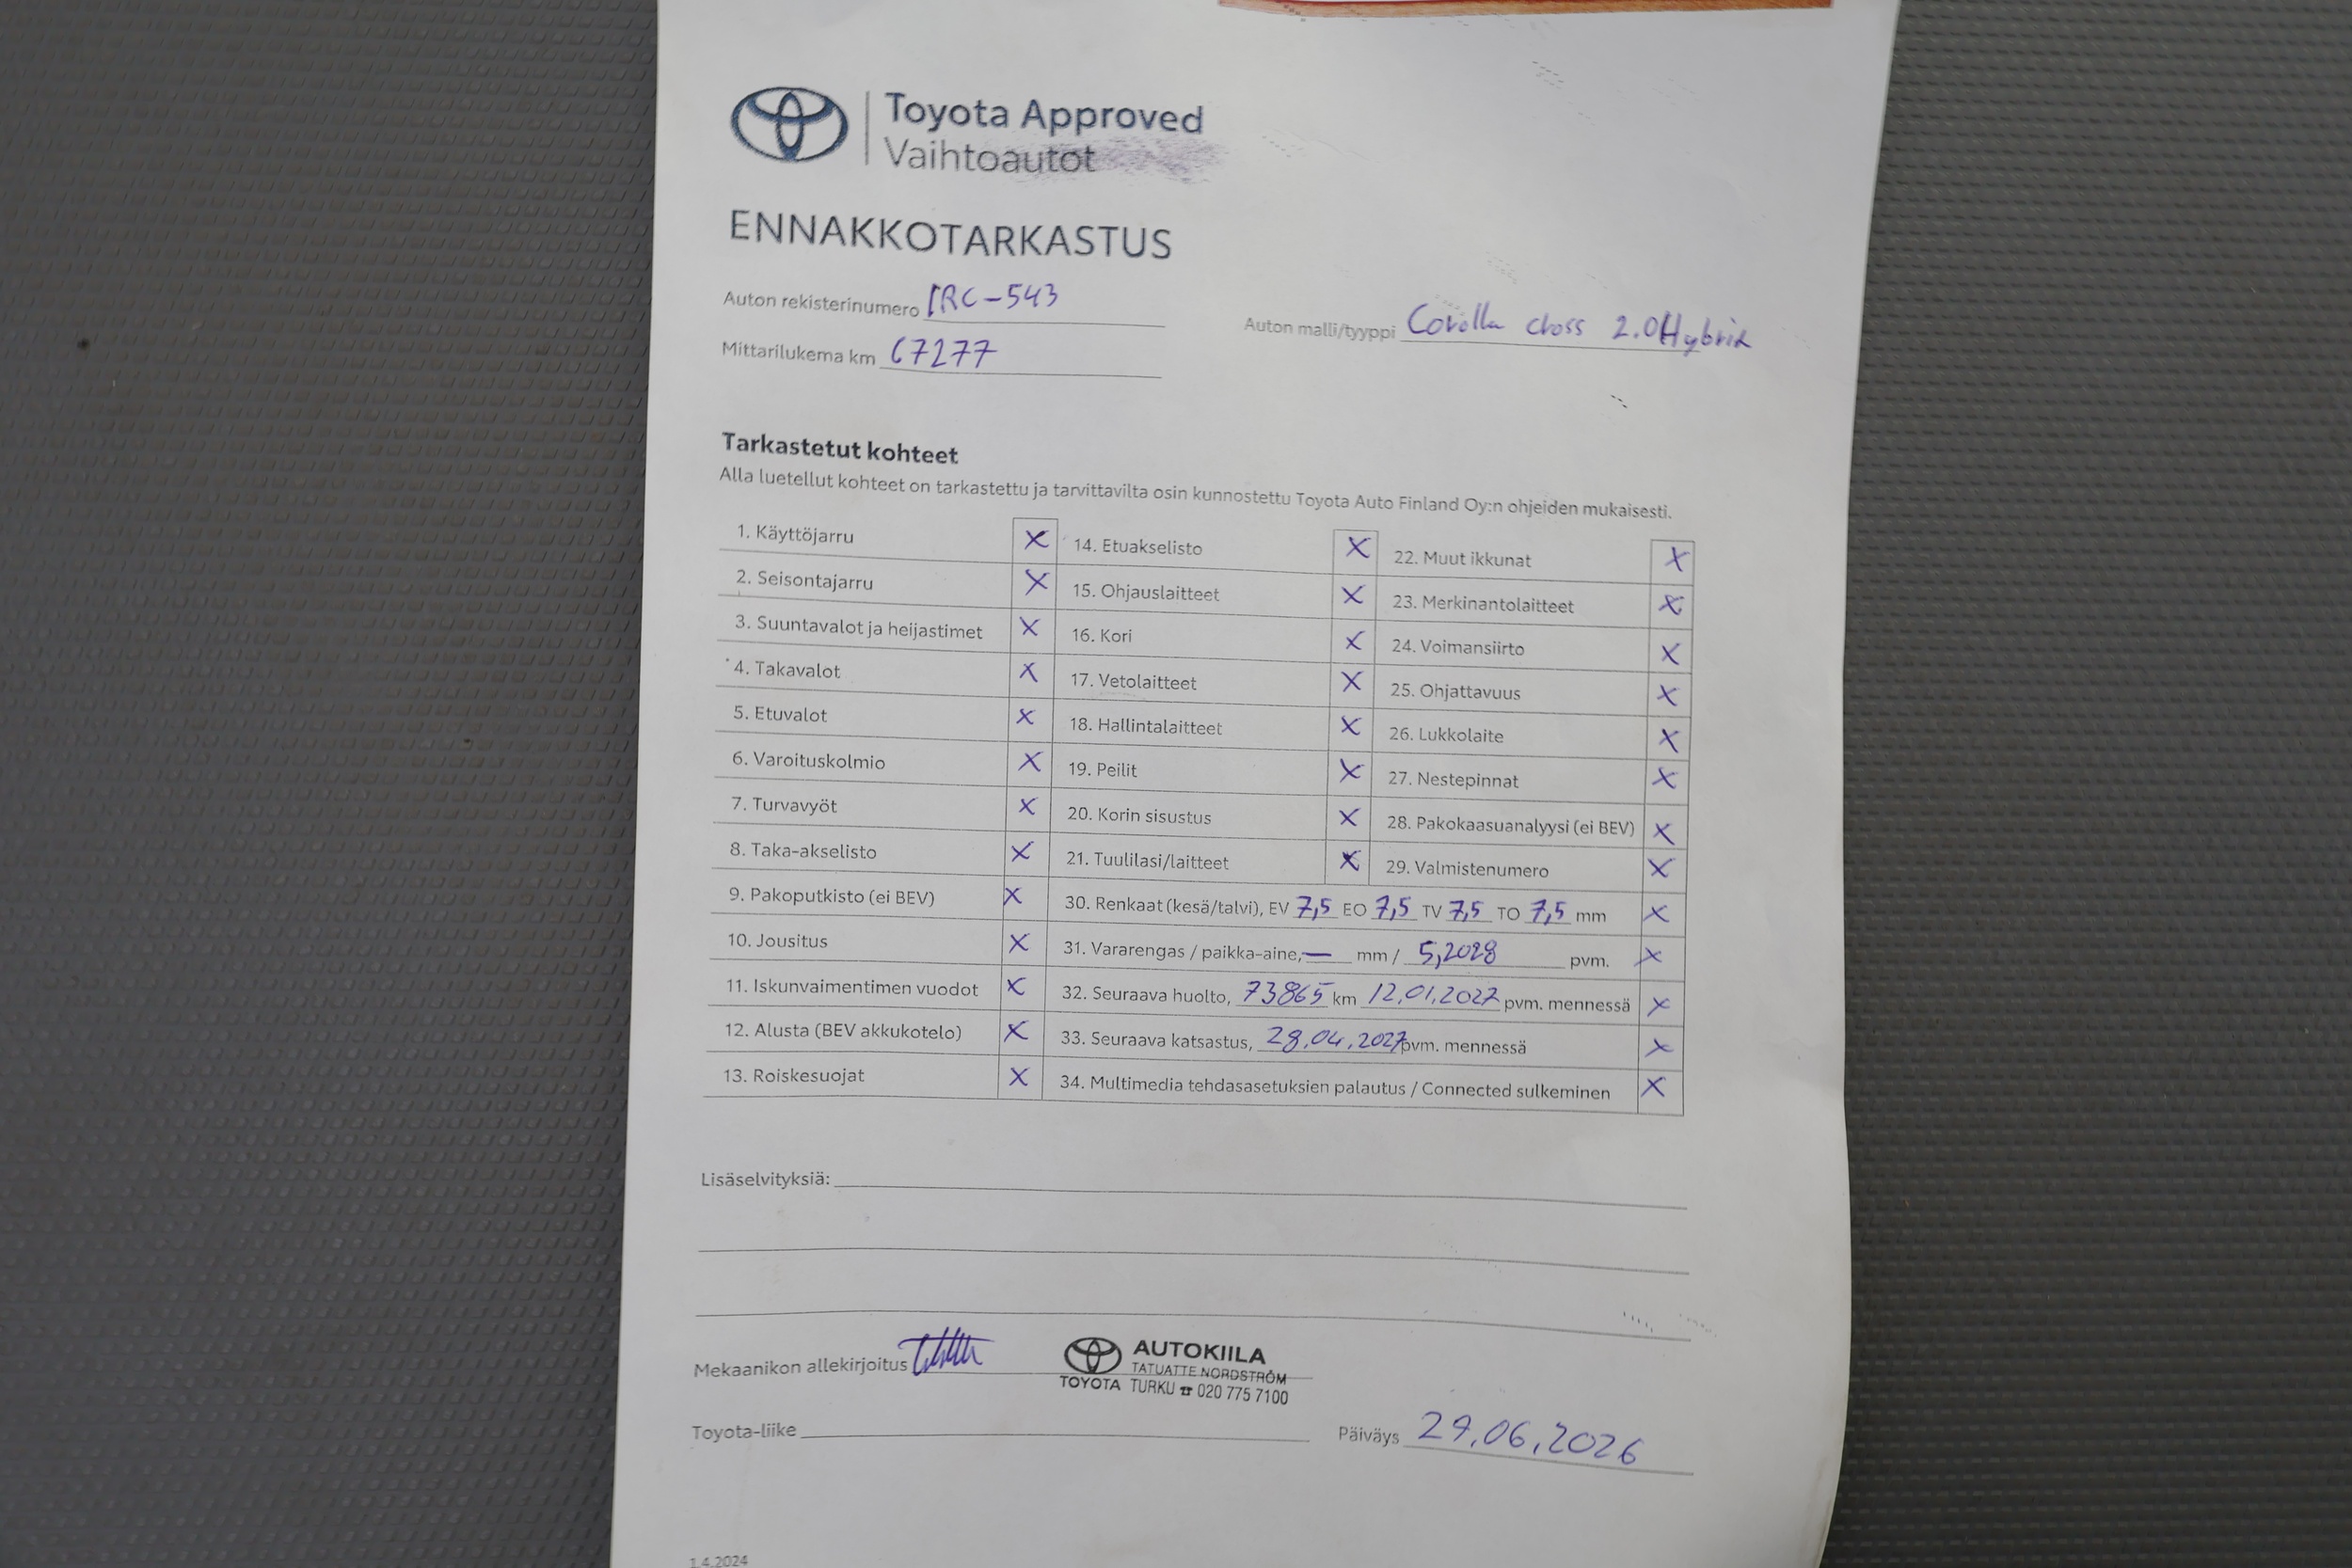 Toyota Approved
Vaihtoautot
ENNAKKOTARKASTUS
Auton rekisterinumero IRC-543
Auton malli/tyyppi Corolla cross 2.0 Hybrid
Mittarilukema km 67277
Tarkastetut kohteet
Alla luetellut kohteet on tarkastettu ja tarvittavilta osin kunnostettu Toyota Auto Finland Oy:n ohjeiden mukaisesti.
1. Käyttöjarru X
2. Seisontajarru X
3. Suuntavalot ja heijastimet X
4. Takavalot X
5. Etuvalot X
6. Varoituskolmio X
7. Turvavyöt X
8. Taka-akselisto X
9. Pakoputkisto (ei BEV) X
10. Jousitus X
11. Iskunvaimentimen vuodot X
12. Alusta (BEV akkukotelo) X
13. Roiskesuojat X
14. Etuakselisto X
15. Ohjauslaitteet X
16. Kori X
17. Vetolaitteet X
18. Hallintalaitteet X
19. Peilit X
20. Korin sisustus X
21. Tuulilasi/laitteet X
22. Muut ikkunat X
23. Merkinantolaitteet X
24. Voimansiirto X
25. Ohjattavuus X
26. Lukkolaite X
27. Nestepinnat X
28. Pakokaasuanalyysi (ei BEV) X
29. Valmistenumero X
30. Renkaat (kesä/talvi), EV 7,5 EO 7,5 TV 7,5 TO 7,5 mm X
31. Vararengas / paikka-aine, — mm / 5,2028 pvm. X
32. Seuraava huolto, 73865 km 12.01.2027 pvm. mennessä X
33. Seuraava katsastus, 28.04.2027 pvm. mennessä X
34. Multimedia tehdasasetuksien palautus / Connected sulkeminen X
Lisäselvityksiä:
Mekaanikon allekirjoitus
AUTOKIILA
TATUATTE NORDSTRÖM
TOYOTA TURKU ☎ 020 775 7100
Toyota-liike
Päiväys 29.06.2026
1.4.2024